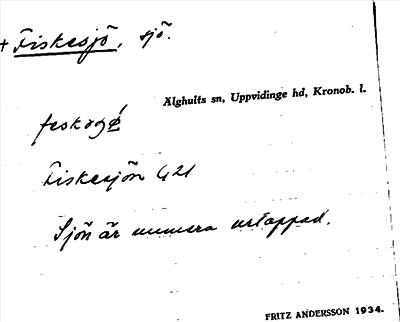 + Fiskesjö, sjö.
Älghults sn, Uppvidinge hd, Kronob. l.
Fiskesjön G21
Sjön är numera urtappad.
FRITZ ANDERSSON 1934.